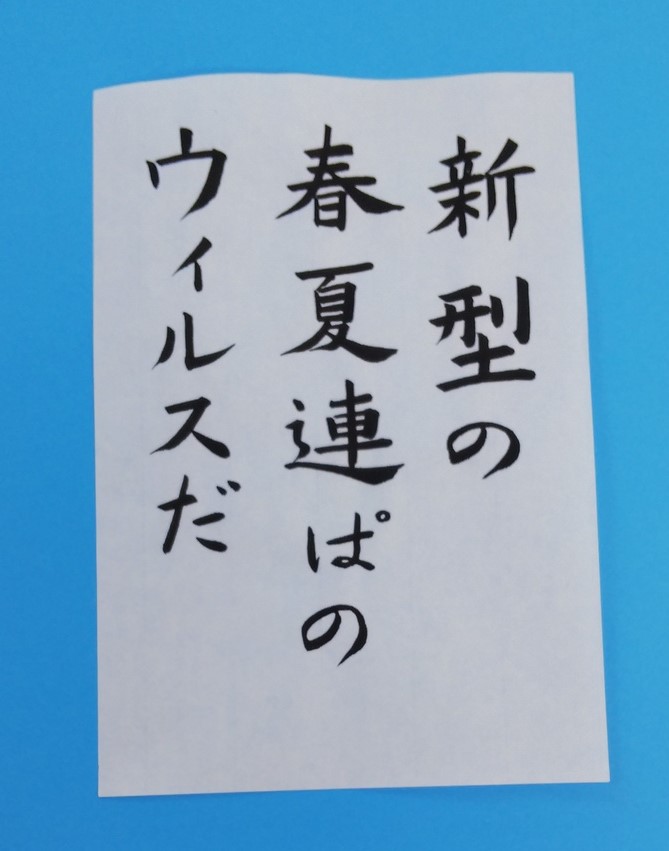 新型の
春夏連ぱの
ウィルスだ